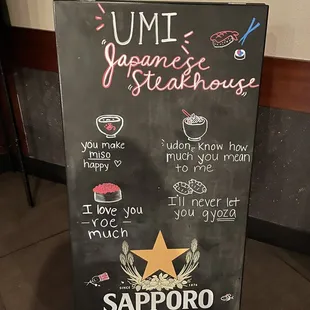 UMI
Japanese
Steakhouse
you make
miso
happy
udon know how
much you mean
to me
I love you
- roe -
much
I'll never let
you gyoza
SINCE 1876
SAPPORO